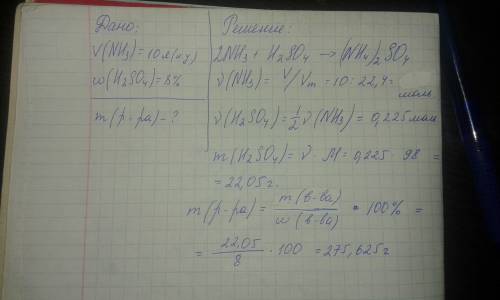 Дано:
V(NH₃)=10л(н.у)
ω(H₂SO₄)=8%
m(р-ра)-?
Решение:
2NH₃ + H₂SO₄ → (NH₄)₂SO₄
ν(NH₃) = V/Vm = 10 : 22,4 =
моль
ν(H₂SO₄) = 1/2 ν(NH₃) = 0,225 моль
m(H₂SO₄) = ν · M = 0,225 · 98 =
= 22,05 г.
m(р-ра) = m(в-ва)/ω(в-ва) * 100% =
= 22,05/8 · 100 = 275,625 г